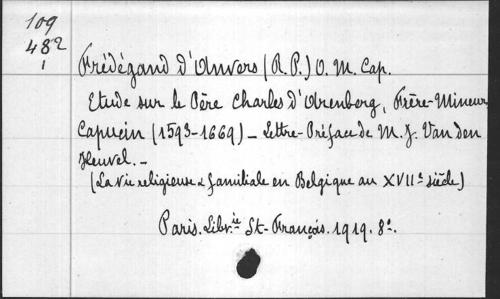 109
482
1
Frédégand d'Anvers (R. P.) O. M. Cap.
Etude sur le Père Charles d'Arenberg, Frère-Mineur
Capucin (1593-1669) _ Lettre-Préface de M. J. Van den
Heuvel. _
(La vie religieuse & familiale en Belgique au XVIIe siècle)
Paris. Librie St-François. 1919. 8o.